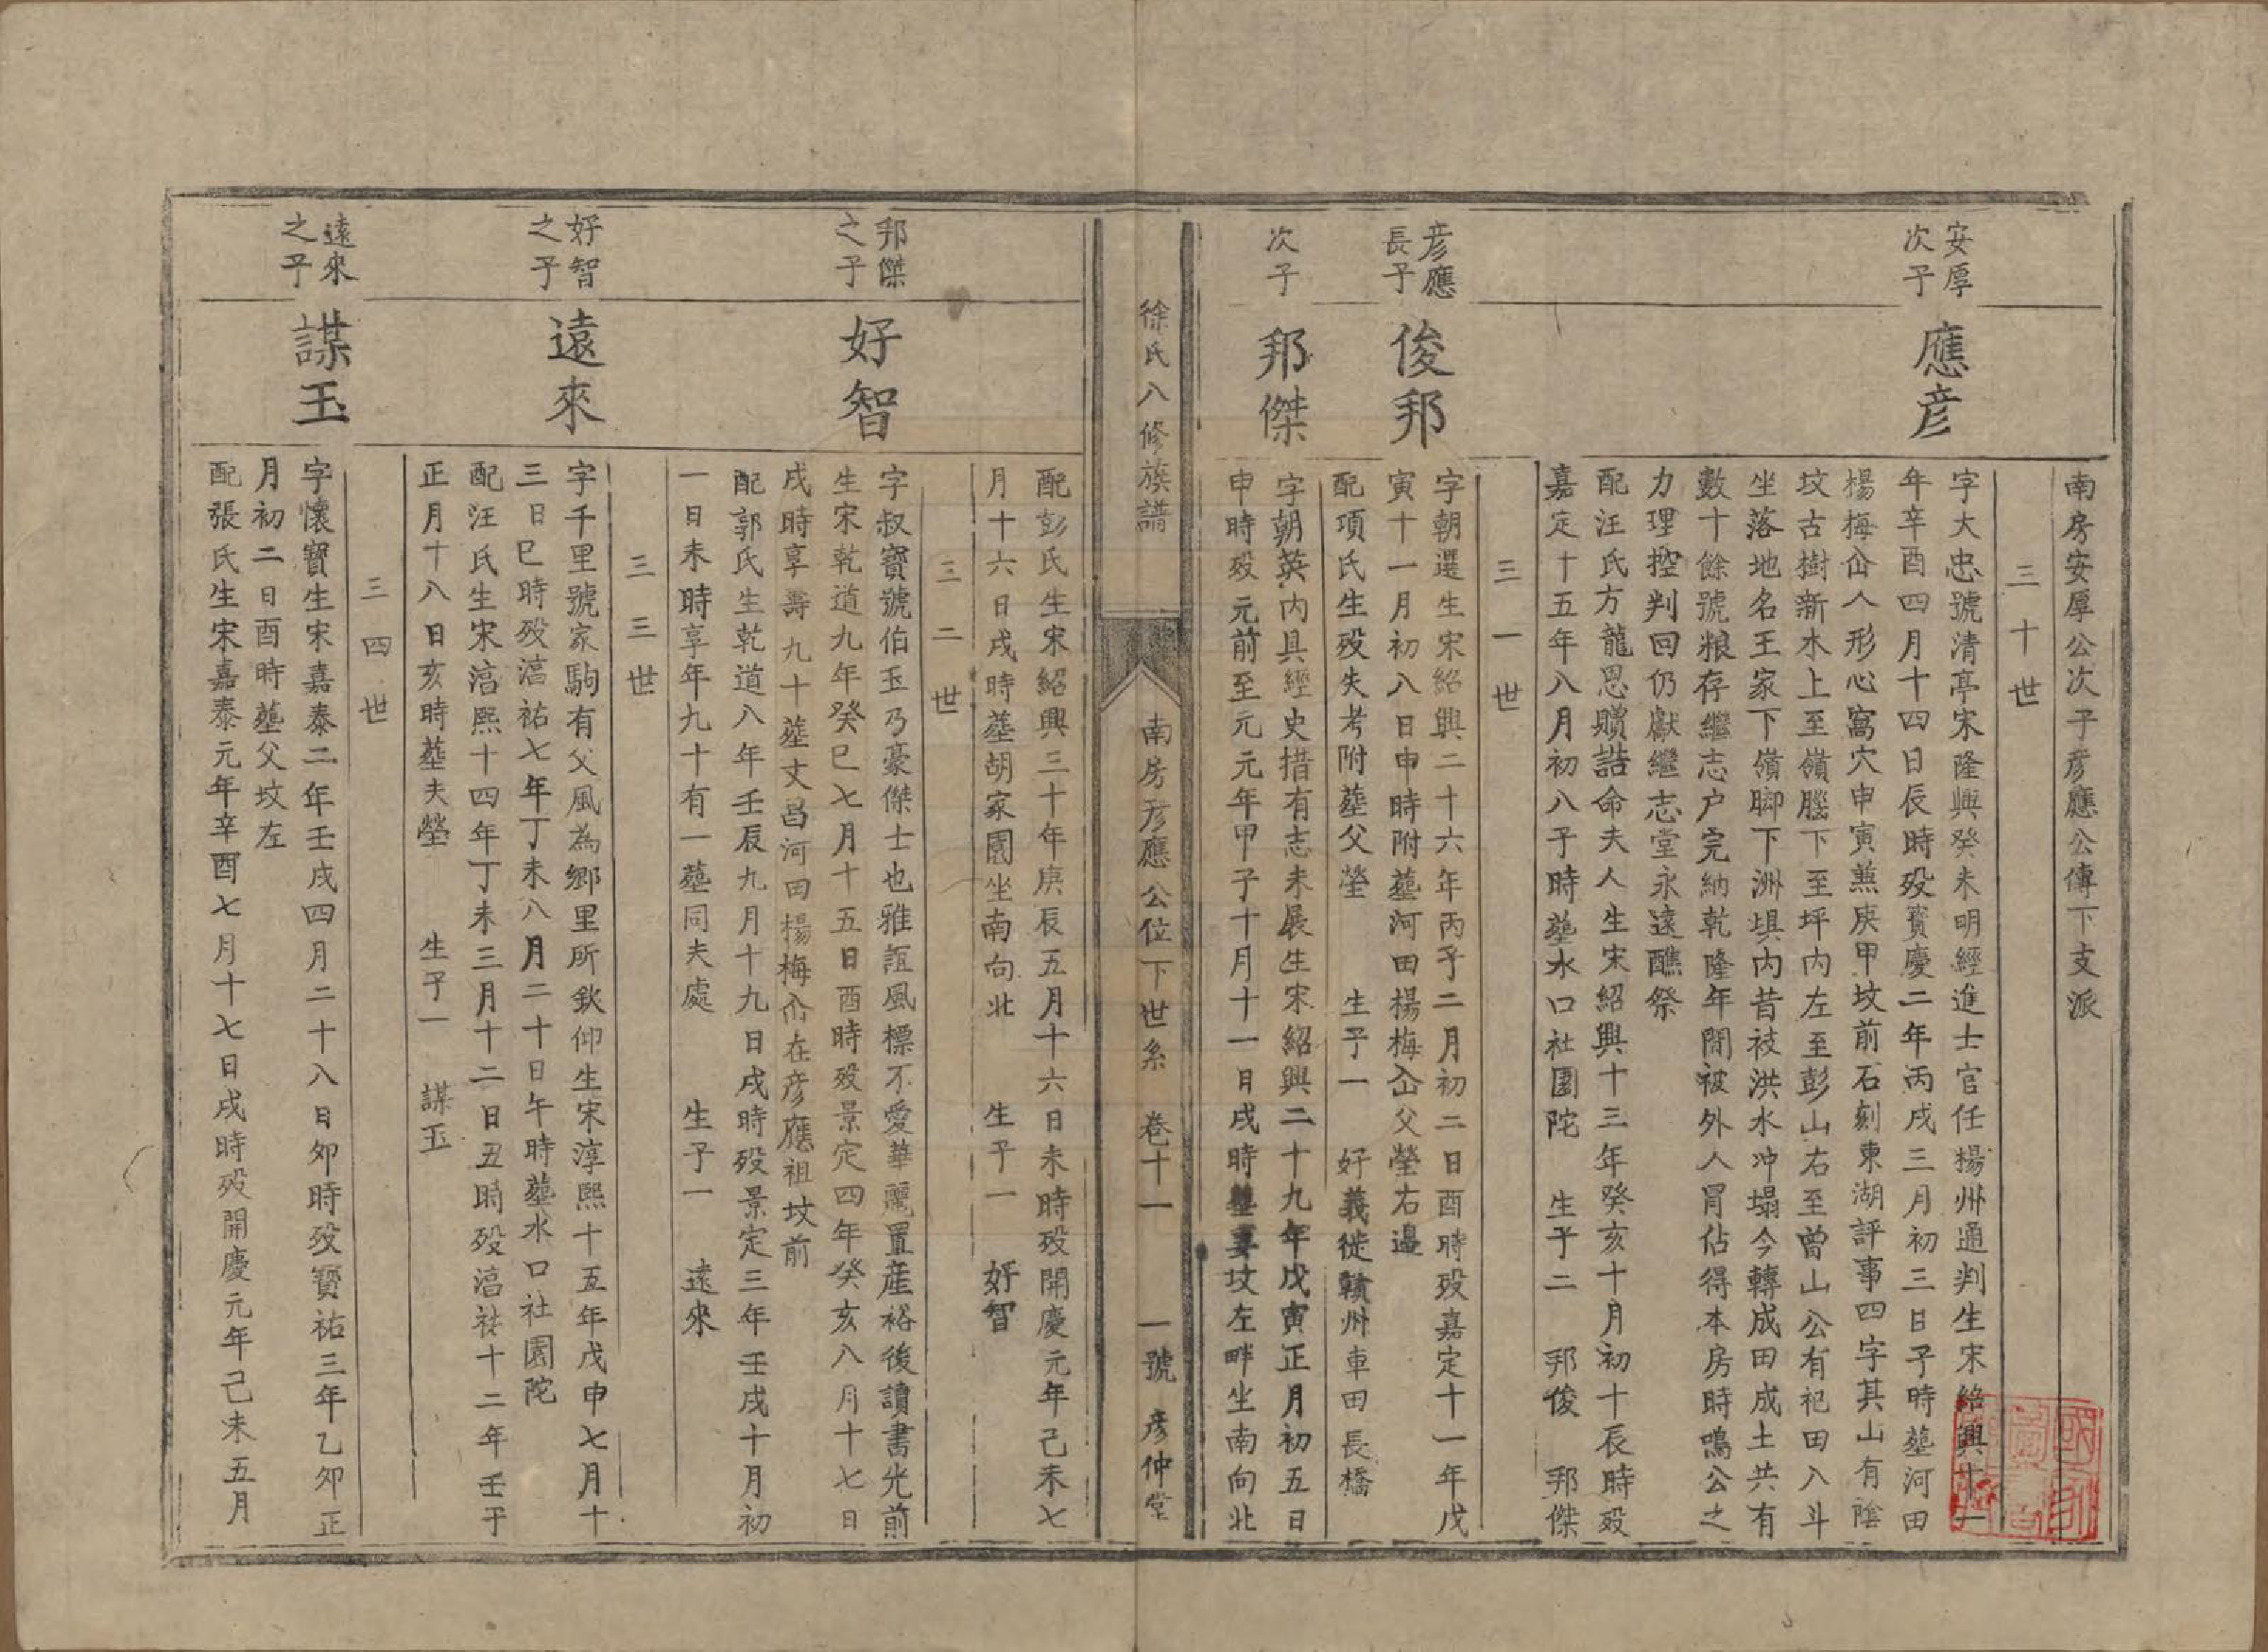 南房安厚公次子彥應公傳下支派
三十世
安厚
次子
應彥
字大忠號清亭宋隆興癸未明經進士官任揚州通判生宋紹興十一
年辛酉四月十四日辰時殁寶慶二年丙戌三月初三日子時塟河田
楊梅仚人形心窩穴申寅兼庚甲坟前石刻東湖評事四字其山有陰
坟古樹新木上至嶺騰下至坪內左至彭山右至曾山公有祀田入斗
坐落地名王家下嶺脚下洲垻內昔被洪水冲塌今轉成田成土共有
數十餘號粮存繼志户完納乾隆年間被外人冐佔得本房時鳴公之
力理控判回仍獻繼志堂永遠醮祭
配汪氏方龍恩贈誥命夫人生宋紹興十三年癸亥十月初十辰時殁
嘉定十五年八月初八子時塟水口社園陀 生子二 邦俊 邦傑
三一世
彥應
長子
俊邦
字朝選生宋紹興二十六年丙子二月初二日酉時殁嘉定十一年戊
寅十一月初八日申時附塟河田楊梅仚父塋右邊
配項氏生殁失考附塟父塋 生子一 好義徙贛州車田長橋
次子
邦傑
字朝英內具經史措有志未展生宋紹興二十九年戊寅正月初五日
申時殁元前至元元年甲子十月十一日戌時塟妻坟左畔坐南向北
徐氏八修族譜
南房彥應公位下世系 卷十一 一號 彥仲堂
配彭氏生宋紹興三十年庚辰五月十六日未時殁開慶元年己未七
月十六日戌時塟胡家園坐南向北 生子一 好智
三二世
邦傑
之子
好智
字叔寶號伯玉乃豪傑士也雅誼風標不愛華麗置産裕後讀書光前
生宋乾道九年癸巳七月十五日酉時殁景定四年癸亥八月十七日
戌時享壽九十塟文昌河田楊梅仚在彥應祖坟前
配郭氏生乾道八年壬辰九月十九日戌時殁景定三年壬戌十月初
一日未時享年九十有一塟同夫處 生子一 遠來
三三世
好智
之子
遠來
字千里號家駒有父風為鄉里所欽仰生宋淳熙十五年戊申七月十
三日巳時殁淳祐七年丁未八月二十日午時塟水口社園陀
配汪氏生宋淳熙十四年丁未三月十二日丑時殁淳祐十二年壬子
正月十八日亥時塟夫塋 生子一 謀玉
三四世
遠來
之子
謀玉
字懷寶生宋嘉泰二年壬戌四月二十八日卯時殁寶祐三年乙卯正
月初二日酉時塟父坟左
配張氏生宋嘉泰元年辛酉七月十七日戌時殁開慶元年己未五月